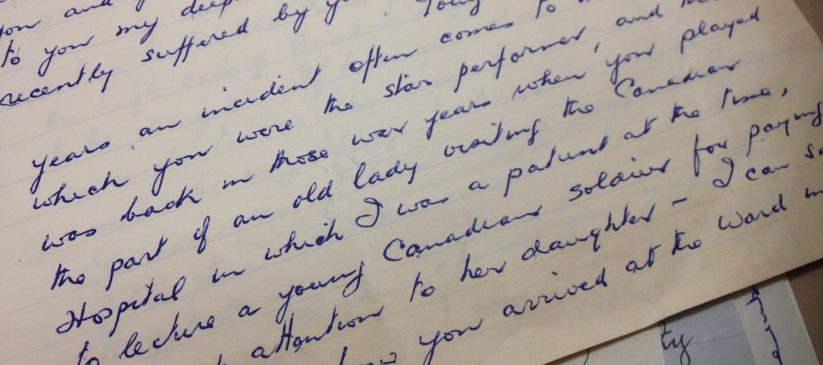 you and
to you my deep
recently suffered by
years an incident often comes to
which you were the star performer, and
was back in those war years when you played
the part of an old lady visiting the Canadian
Hospital in which I was a patient at the time,
to lecture a young Canadian soldier for paying
attention to her daughter - I can
you arrived at the Ward in
ty